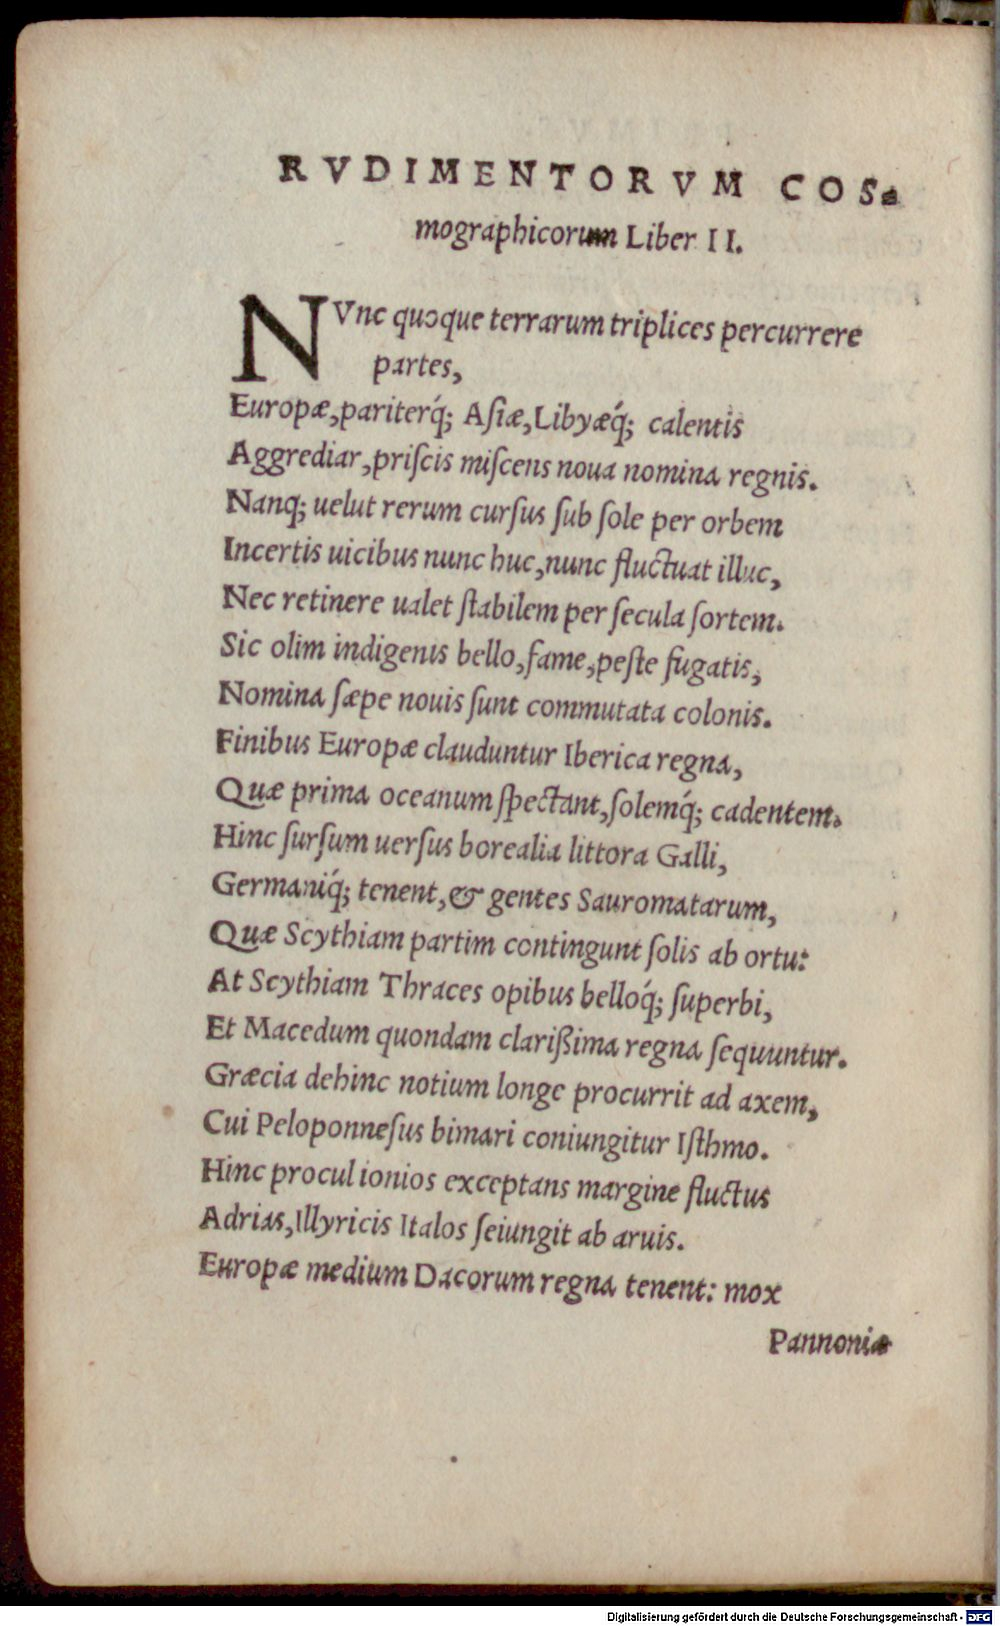 RVDIMENTORVM COS-
mographicorum Liber II.
NVnc quoque terrarum triplices percurrere
partes,
Europæ, pariterq́; Aſiæ, Libyæq́; calentis
Aggrediar, priſcis miſcens noua nomina regnis.
Nanq; uelut rerum curſus ſub ſole per orbem
Incertis uicibus nunc huc, nunc fluctuat illuc,
Nec retinere ualet ſtabilem per ſecula ſortem.
Sic olim indigenis bello, fame, peſte fugatis,
Nomina ſæpe nouis ſunt commutata colonis.
Finibus Europæ clauduntur Iberica regna,
Quæ prima oceanum ſpectant, ſolemq́; cadentem.
Hinc ſurſum uerſus borealia littora Galli,
Germaniq́; tenent, & gentes Sauromatarum,
Quæ Scythiam partim contingunt ſolis ab ortu:
At Scythiam Thraces opibus belloq́; ſuperbi,
Et Macedum quondam clarißima regna ſequuntur.
Græcia dehinc notium longe procurrit ad axem,
Cui Peloponneſus bimari coniungitur Iſthmo.
Hinc procul ionios exceptans margine fluctus
Adrias, Illyricis Italos ſeiungit ab aruis.
Europæ medium Dacorum regna tenent: mox
Pannoniæ
Digitalisierung gefördert durch die Deutsche Forschungsgemeinschaft - DFG